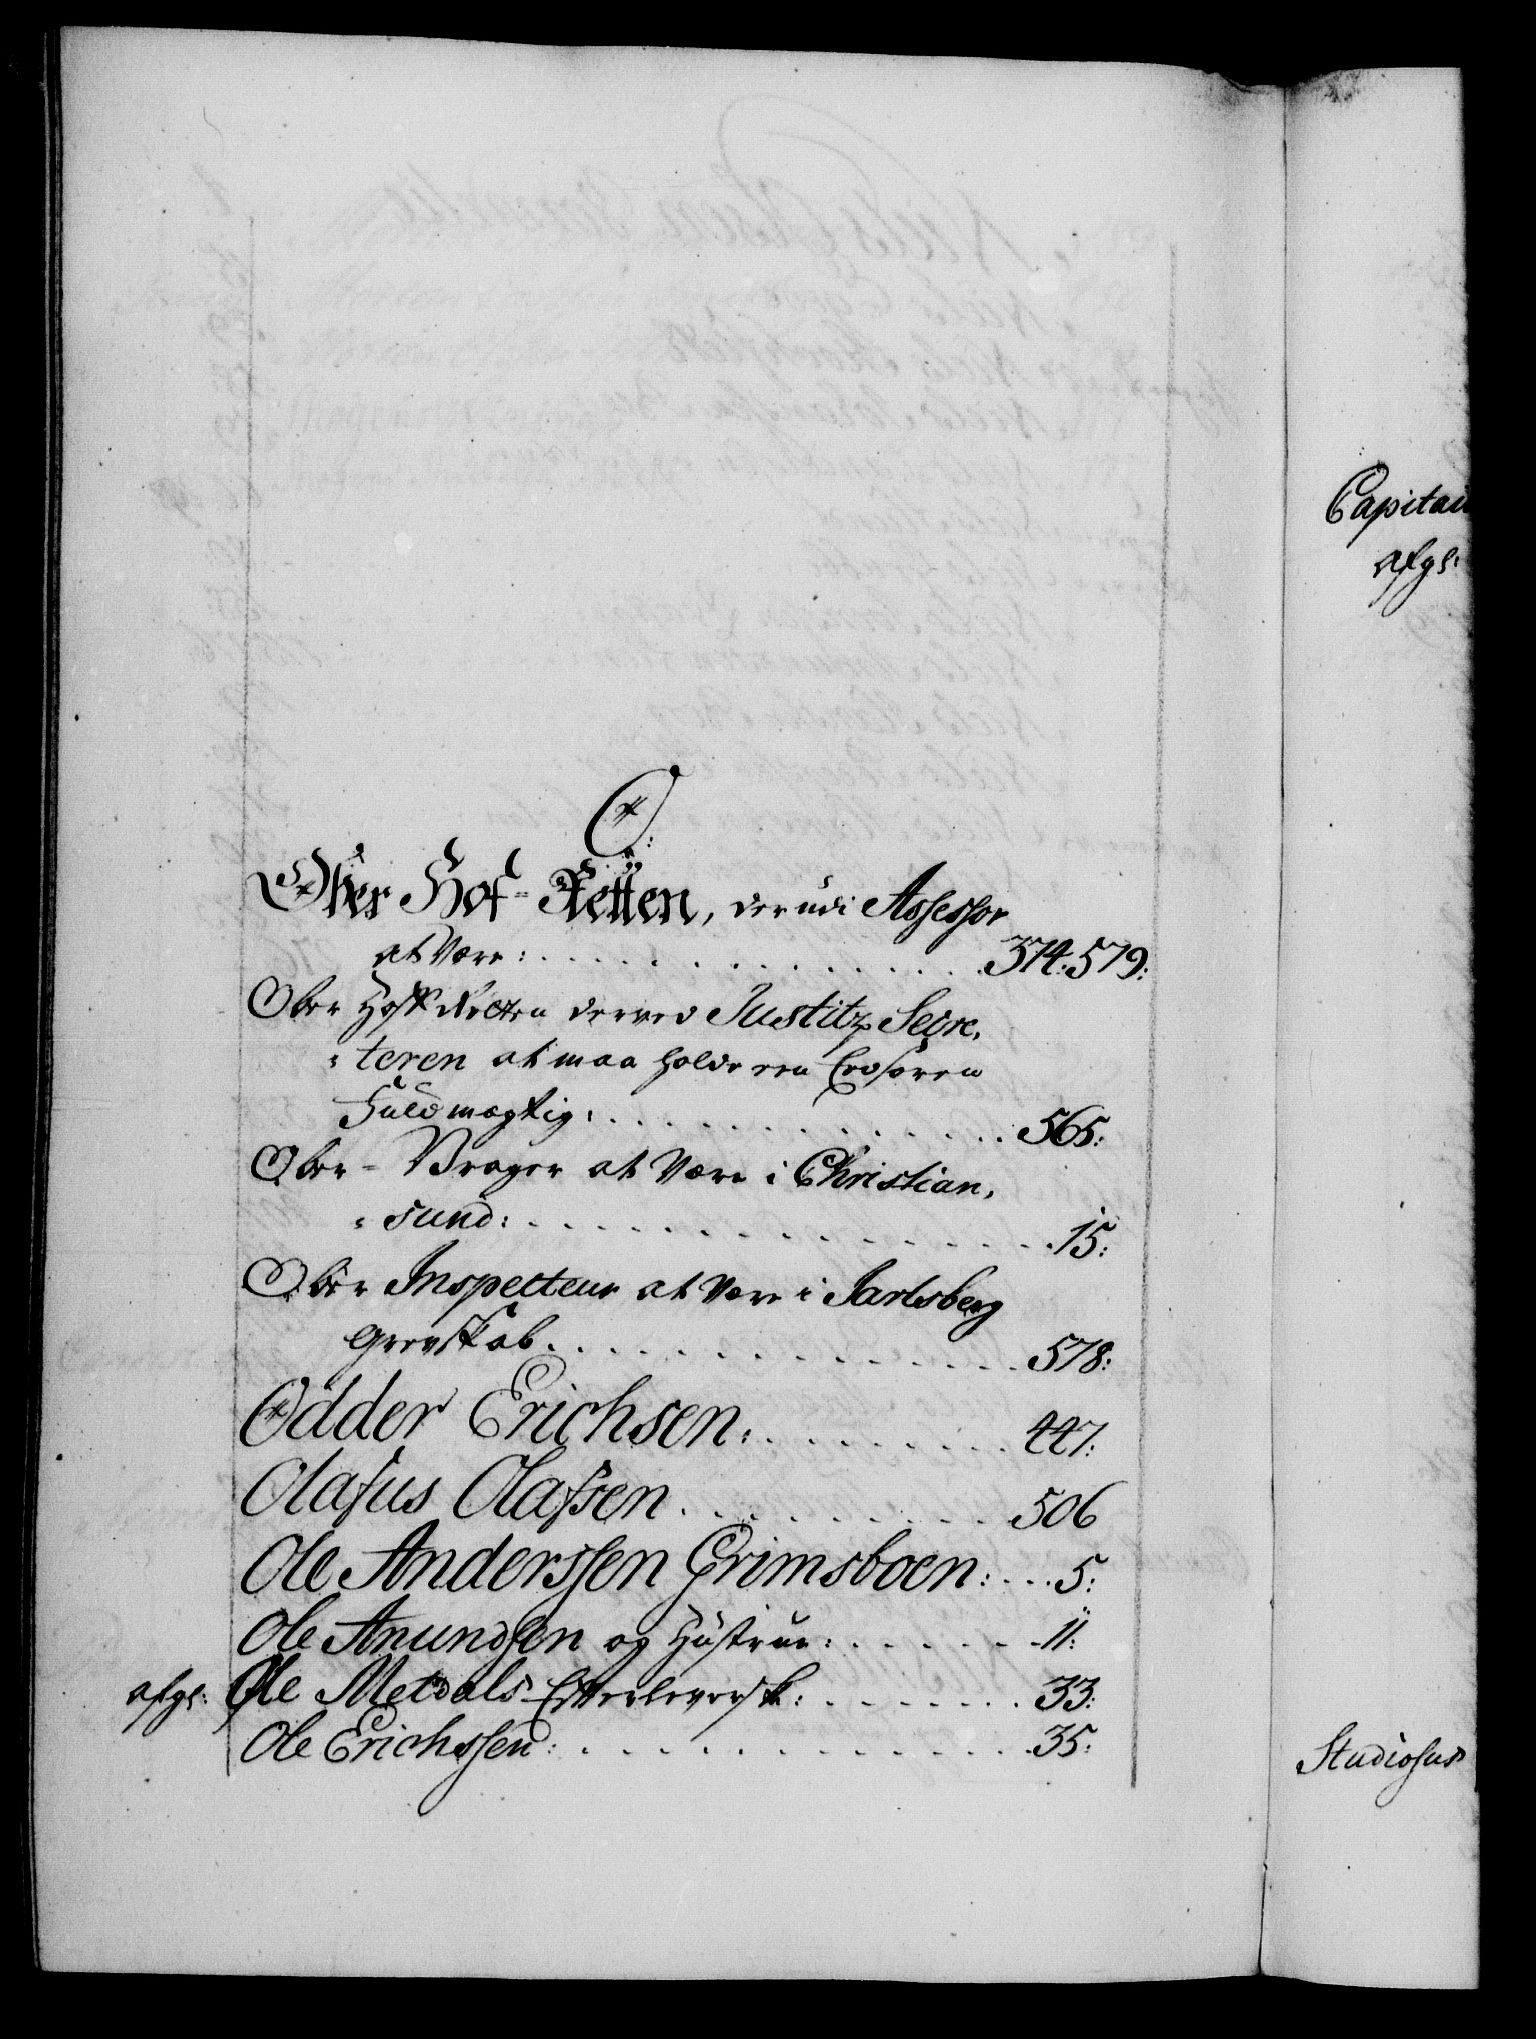 O:
Ober Hof-Retten, derudi Assessor
at være: 374: 579:
Ober Hoff Retten derved Justitz Secre,
teren at maa holde een Eedsoren
Fuldmægtig: 565:
Ober-Vrager at være i Christian,
sund: 15:
Ober Inspecteur at være i Jarlsberg
Grevskab 578:
Odder Erichsen: 447:
Olafus Olafsen 506
Ole Anderssen Grimsboen: 5:
Ole Anundsen og Hustrue: 11:
afgl: Ole Metdals Efterleversk: 33:
Ole Erichssen: 35:
Capitain
afgl:
Studiosus